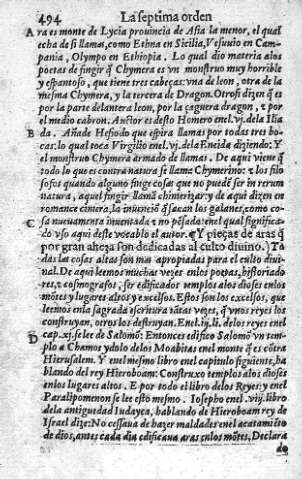 494 La septima orden
A ra es monte de Lycia prouincia de Asia la menor, el qual
echa de si llamas, como Ethna en Sicilia, Vesuuio en Cam-
pania, Olympo en Ethiopia. Lo qual dio materia alos
poetas de fingir q̃ Chymera es vn monstruo muy horrible
y espantoso, que tiene tres cabeças: vna de leon, otra de la
mesma Chymera, y la tercera de Dragon. Otrosi dizen q̃ es
por la parte delantera leon, por la çaguera dragon, ⁊ por
el medio cabron. Auctor es desto Homero enel .vj. dela Ilia
B da. Añade Hesiodo que espira llamas por todas tres bo-
cas: lo qual toca Virgilio enel .vj. dela Eneida diziendo: Y
el monstruo Chymera armado de llamas. De aqui viene q̃
todo lo que es contra natura se llama Chymerino: ⁊ los filo
sofos quando alguno finge cosas que no puedẽ ser in rerum
natura, aquel fingir llamã chimerizar: y de aqui dizen en
romance cimera, la inuenciõ q̃ sacan los galanes, como co-
C sa nueuamente inuentada ⁊ no pẽsada: enel qual significa-
do vso aqui deste vocablo el autor. ¶ Y pieças de aras q̃
por gran alteza son dedicadas al culto diuino.) To
das las cosas altas son mas apropiadas para el culto diui-
nal. De aqui leemos muchas vezes enlos poetas, historiado
res, ⁊ cosmografos, ser edificados templos alos dioses enlos
mõtes y lugares altos y excelsos. Estos son los excelsos, que
leemos enla sagrada escritura tãtas vezes, q̃ vnos reyes los
construyan, otros los destruyan. Enel .iij. li. delos reyes enel
D cap. xj. se lee de Salomõ: Entonces edifico Salomõ vn tem-
plo a Chemos ydolo delos Moabitas enel monte q̃ es cõtra
Hierusalem. Y enel mesmo libro enel capitulo siguiente, ha
blando del rey Hieroboam: Construxo templos alos dioses
enlos lugares altos. E por todo el libro delos Reyes: y enel
Paralipomenon se lee esto mesmo. Iosepho enel .viij. libro
dela antiguedad Iudayca, hablando de Hieroboam rey de
Israel dize: No cessaua de hazer maldades enel acatamiẽto
de dios, antes cada dia edificaua aras enlos mõtes. Declara
do